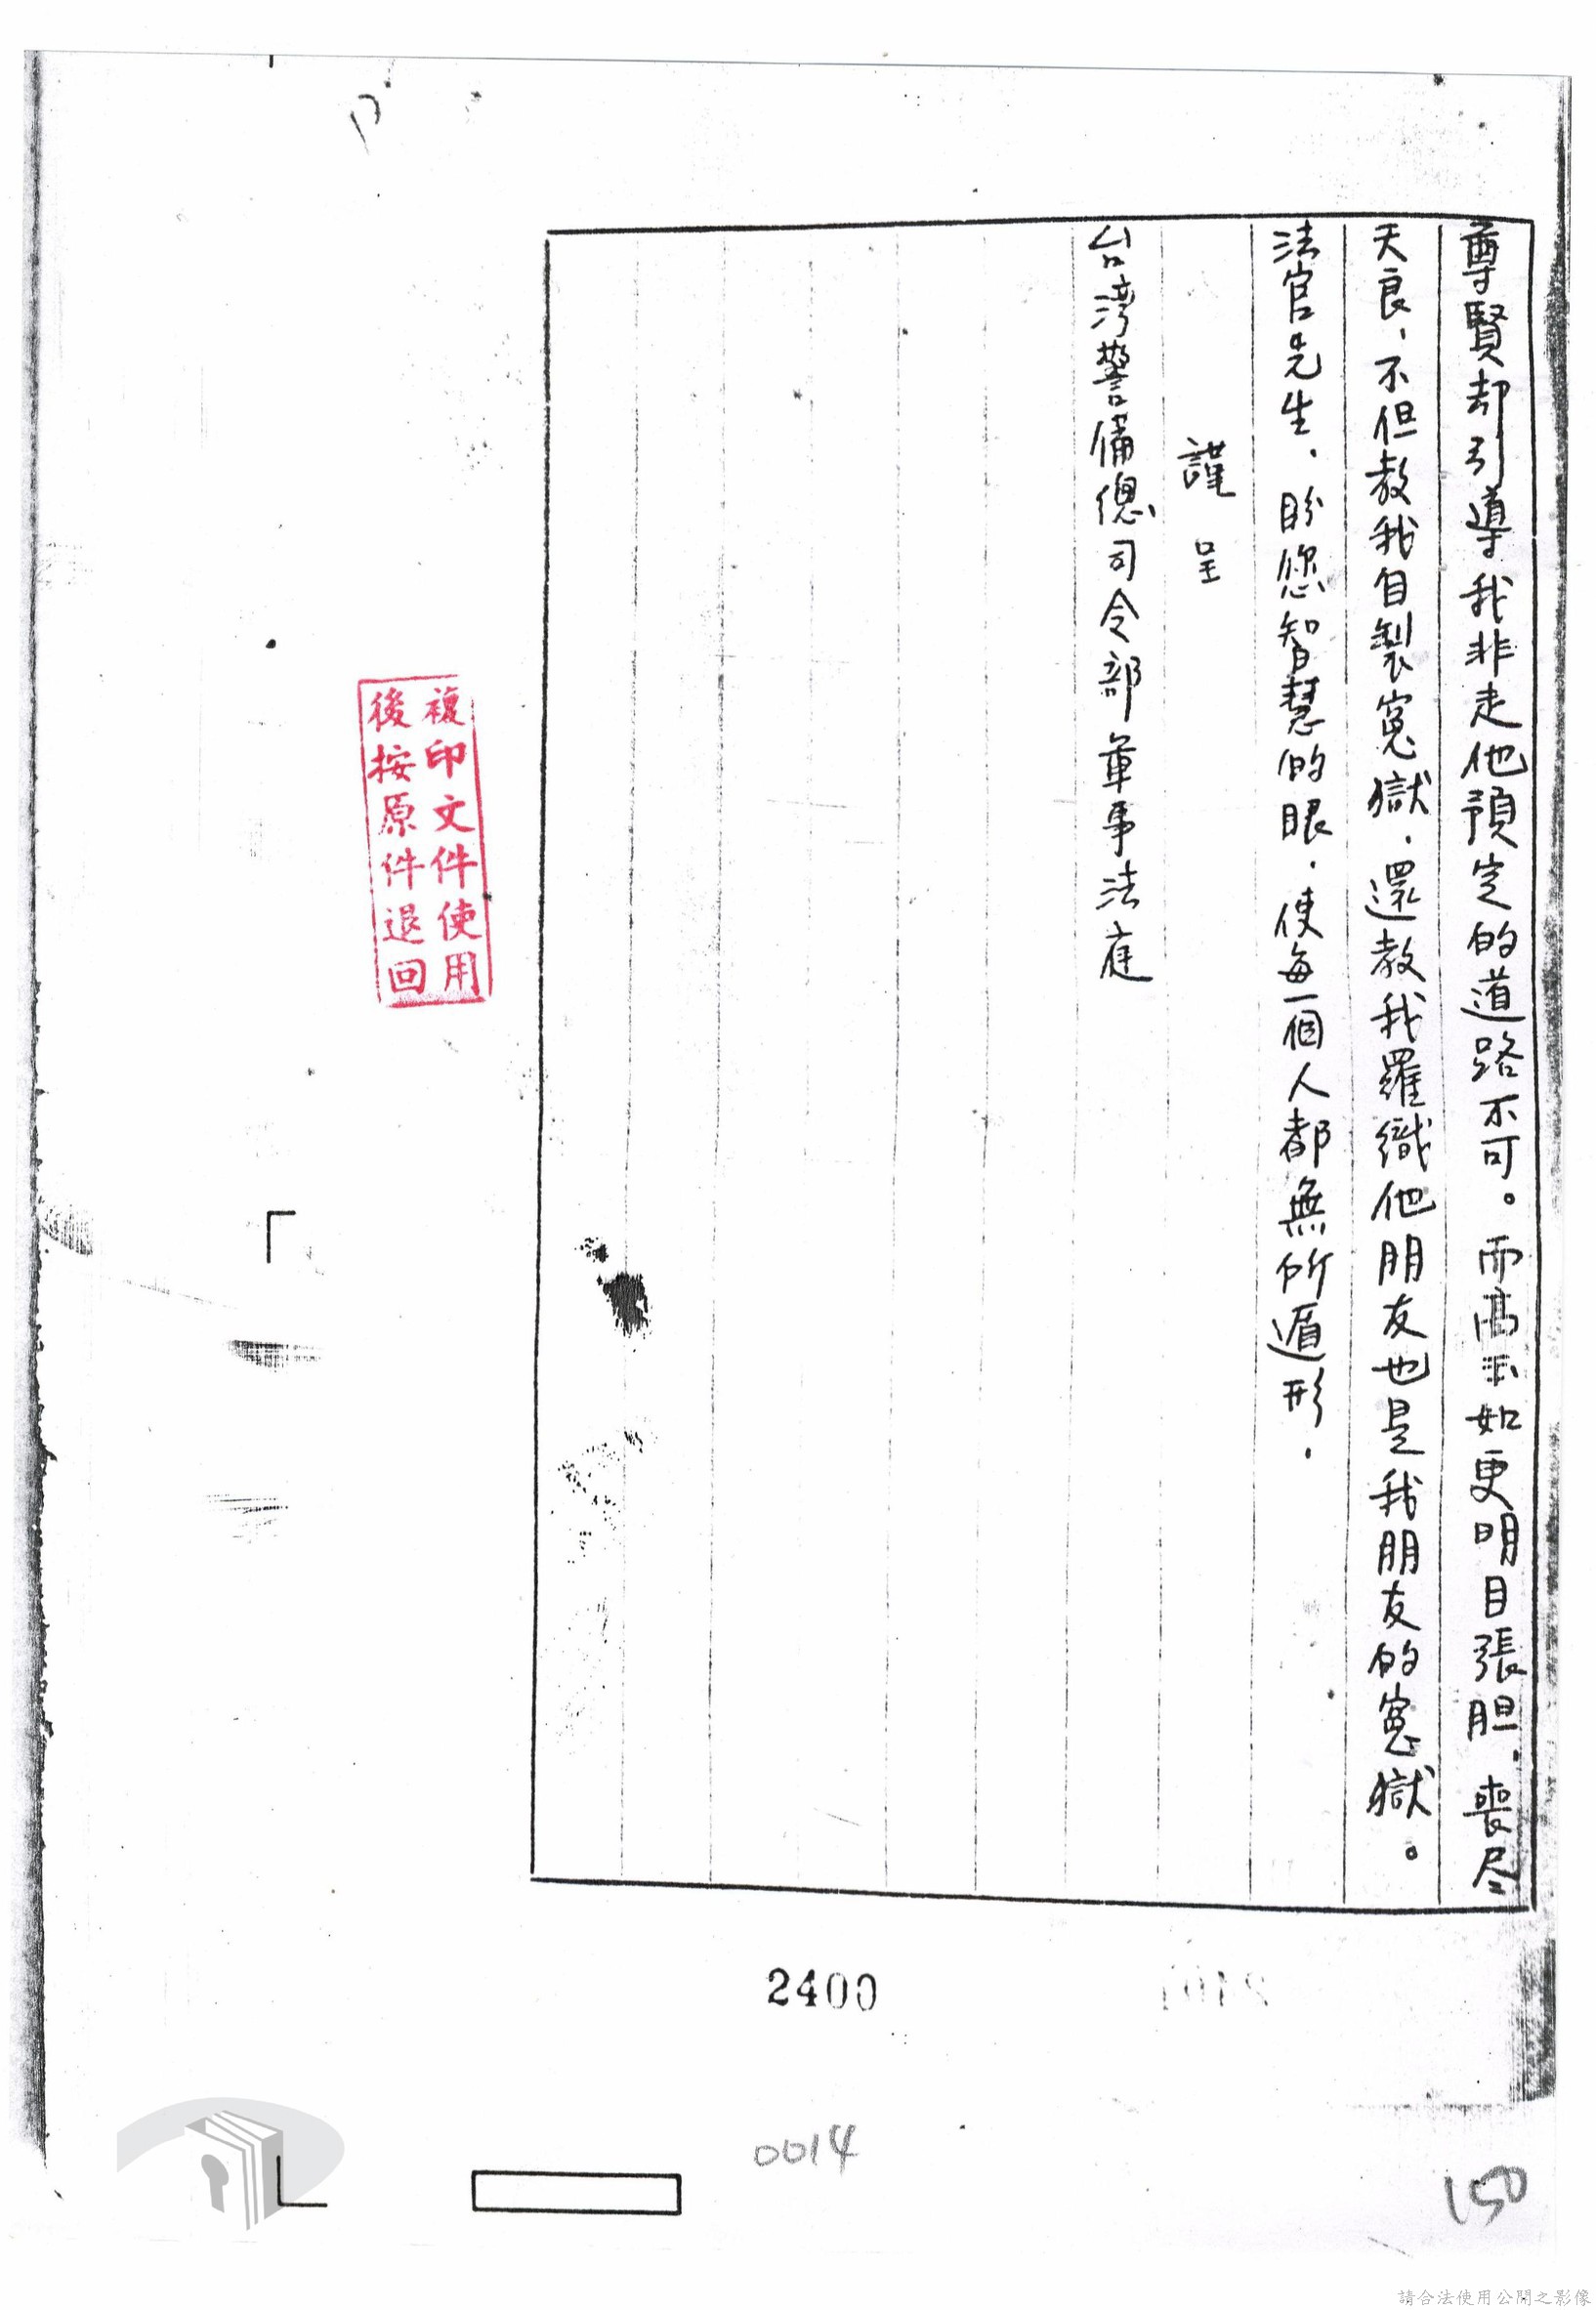 尊賢却引導我非走他預定的道路不可。而高玉如更明目張胆，喪尽
天良，不但教我自製寃獄，還教我羅織他朋友也是我朋友的寃獄。
法官先生，盼您智慧的眼，使每一個人都無所遁形．
謹呈
台湾警備總司令部軍事法庭
複印文件使用
後按原件退回
2400
0014
150
請合法使用公開之影像